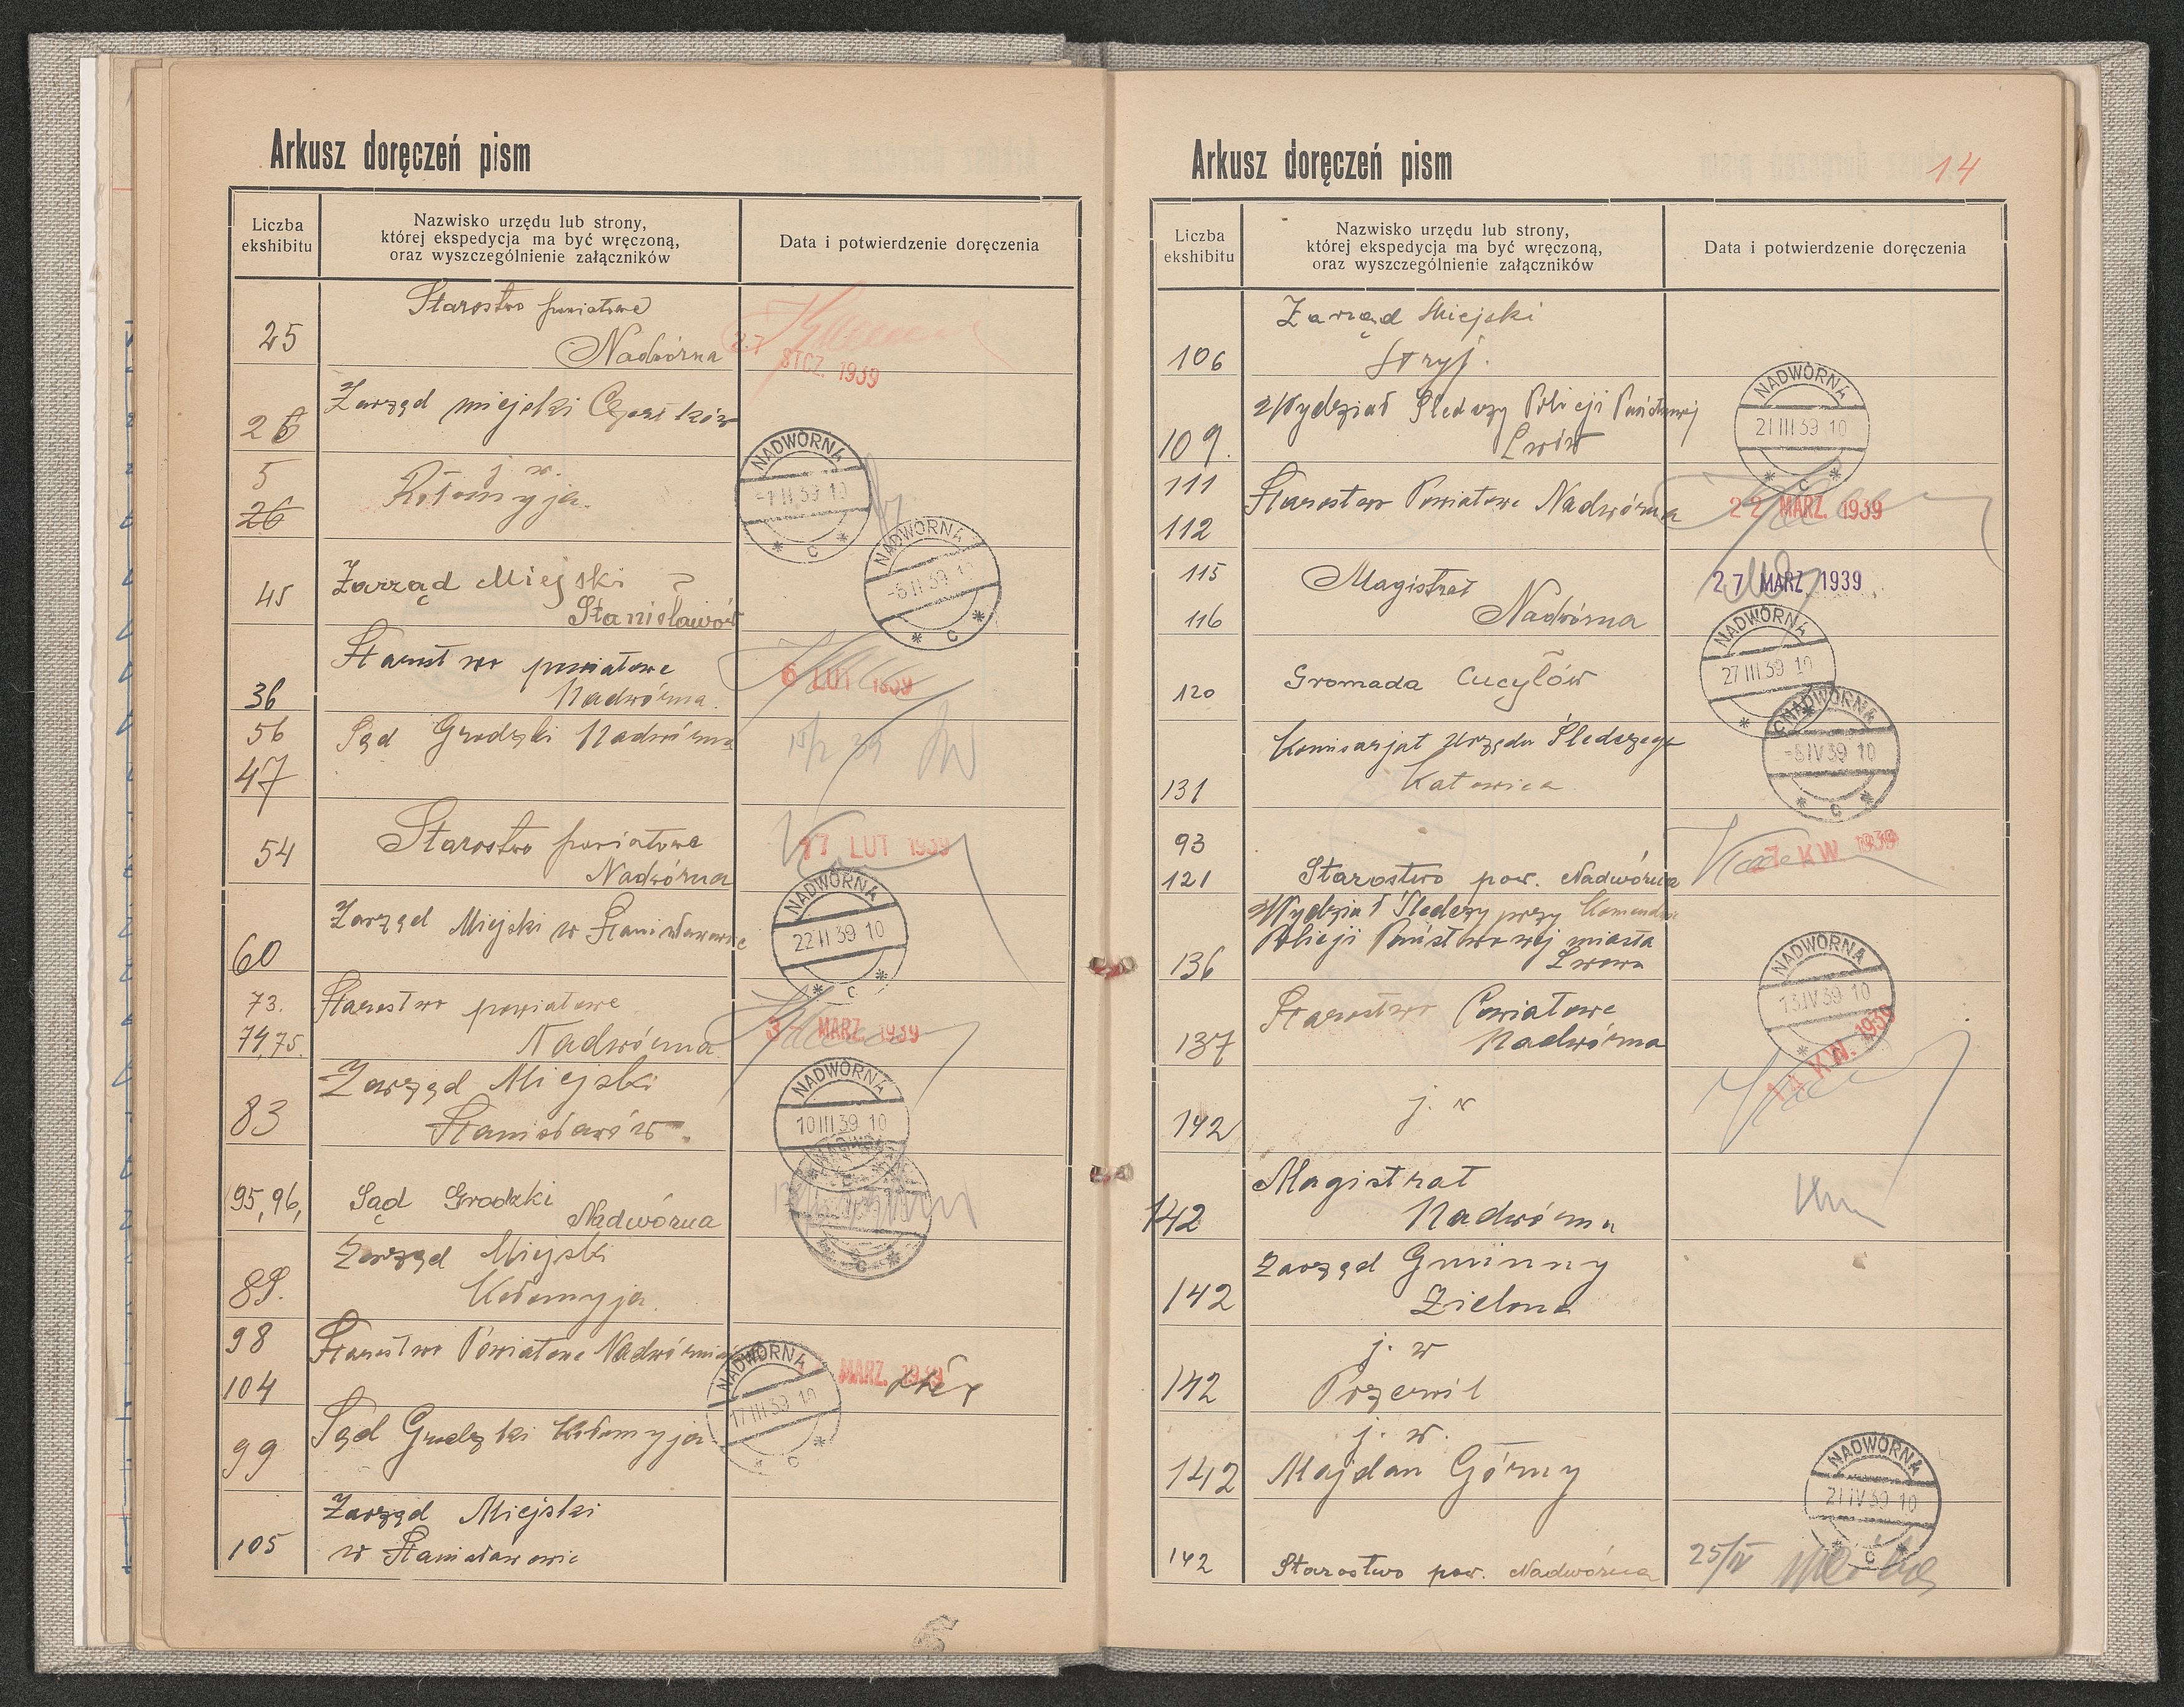 Arkusz doręczeń pism
Liczba ekshibitu
Nazwisko urzędu lub strony,
której ekspedycja ma być wręczoną,
oraz wyszczególnienie załączników
Data i potwierdzenie doręczenia
Starostwo powiatowe
25 Nadwórna 27 STCZ. 1939
26 Zarząd miejski
5 j w.
26 Kołomyja.
NADWÓRNA -1 II 39 10 * C *
45 Zarząd Miejski
Stanisławów
NADWÓRNA II 39 * C *
Starostwo powiatowe
36 Nadwórna. 6 LUT 1939
56 Sąd Grodzki Nadwórna
47
Starostwo powiatowe
54 Nadwórna 17 LUT 1939
60 Zarząd Miejski w Stanisławowie
NADWÓRNA 22 II 39 10 * C *
73. Starostwo powiatowe
74,75. Nadwórna 3- MARZ. 1939
Zarząd Miejski
83 Stanisławów.
NADWÓRNA 10 III 39 10 * C *
95, 96, Sąd Grodzki
Nadwórna
NADWÓRNA * C *
Zarząd Miejski
89. Kołomyja.
98 Starostwo Powiatowe
104 MARZ. 1939
NADWÓRNA 17 III 39 10 * C *
99 Sąd Grodzki Kołomyja
Zarząd Miejski
105 w Stanisławowie
Arkusz doręczeń pism
14
Liczba ekshibitu
Nazwisko urzędu lub strony,
której ekspedycja ma być wręczoną,
oraz wyszczególnienie załączników
Data i potwierdzenie doręczenia
Zarząd Miejski
106 Stryj.
Wydział Śledczy Policji Państwowej
109. Lwów
NADWÓRNA 21 III 39 10 * C *
111
Starostwo Powiatowe Nadwórna 22 MARZ. 1939
112
115 Magistrat 27 MARZ. 1939
116 Nadwórna
120 Gromada Cucyłów
NADWÓRNA 27 III 39 10 * C
Komisarjat Urzędu Śledczego
131 Katowice
NADWÓRNA IV 39 10 * C *
93
121 Starostwo pow. Nadwórna 7 KW. 1939
Wydział Śledczy przy Komendzie
Policji Państwowej miasta
136 Lwowa
NADWÓRNA 13 IV 39 10 *
Starostwo Powiatowe
137 Nadwórna
14 KW. 1939
142 j. w
Magistrat
142 Nadwórna
Zarząd Gminny
142 Zielona
j. w
142
j. w.
142 Majdan Górny
NADWÓRNA 21 IV 39 10 * C *
142 Starostwo pow. Nadwórna 25/IV